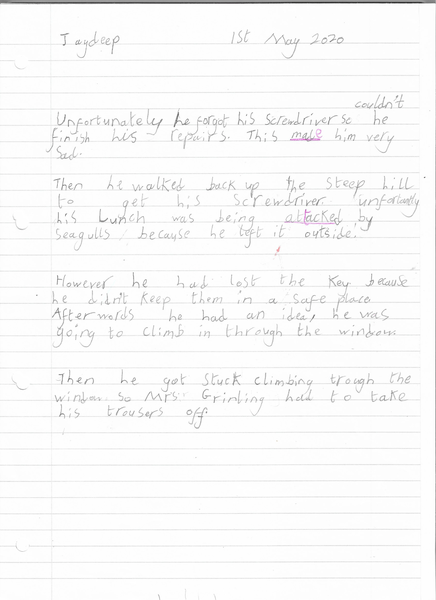 Jaydeep 1st May 2020
couldn't
Unfortunately he forgot his Screwdriver so he
finish his repairs. This made him very
Sad.
Then he walked back up the Steep hill
to get his Screwdriver. unfortunatly
his Lunch was being attacked by
seagulls because he left it outside!
However he had lost the Key because
he didn't Keep them in a safe place
After words he had an idea, he was
going to climb in through the window.
Then he got Stuck climbing trough the
window. so Mrs Grinling had to take
his trousers off